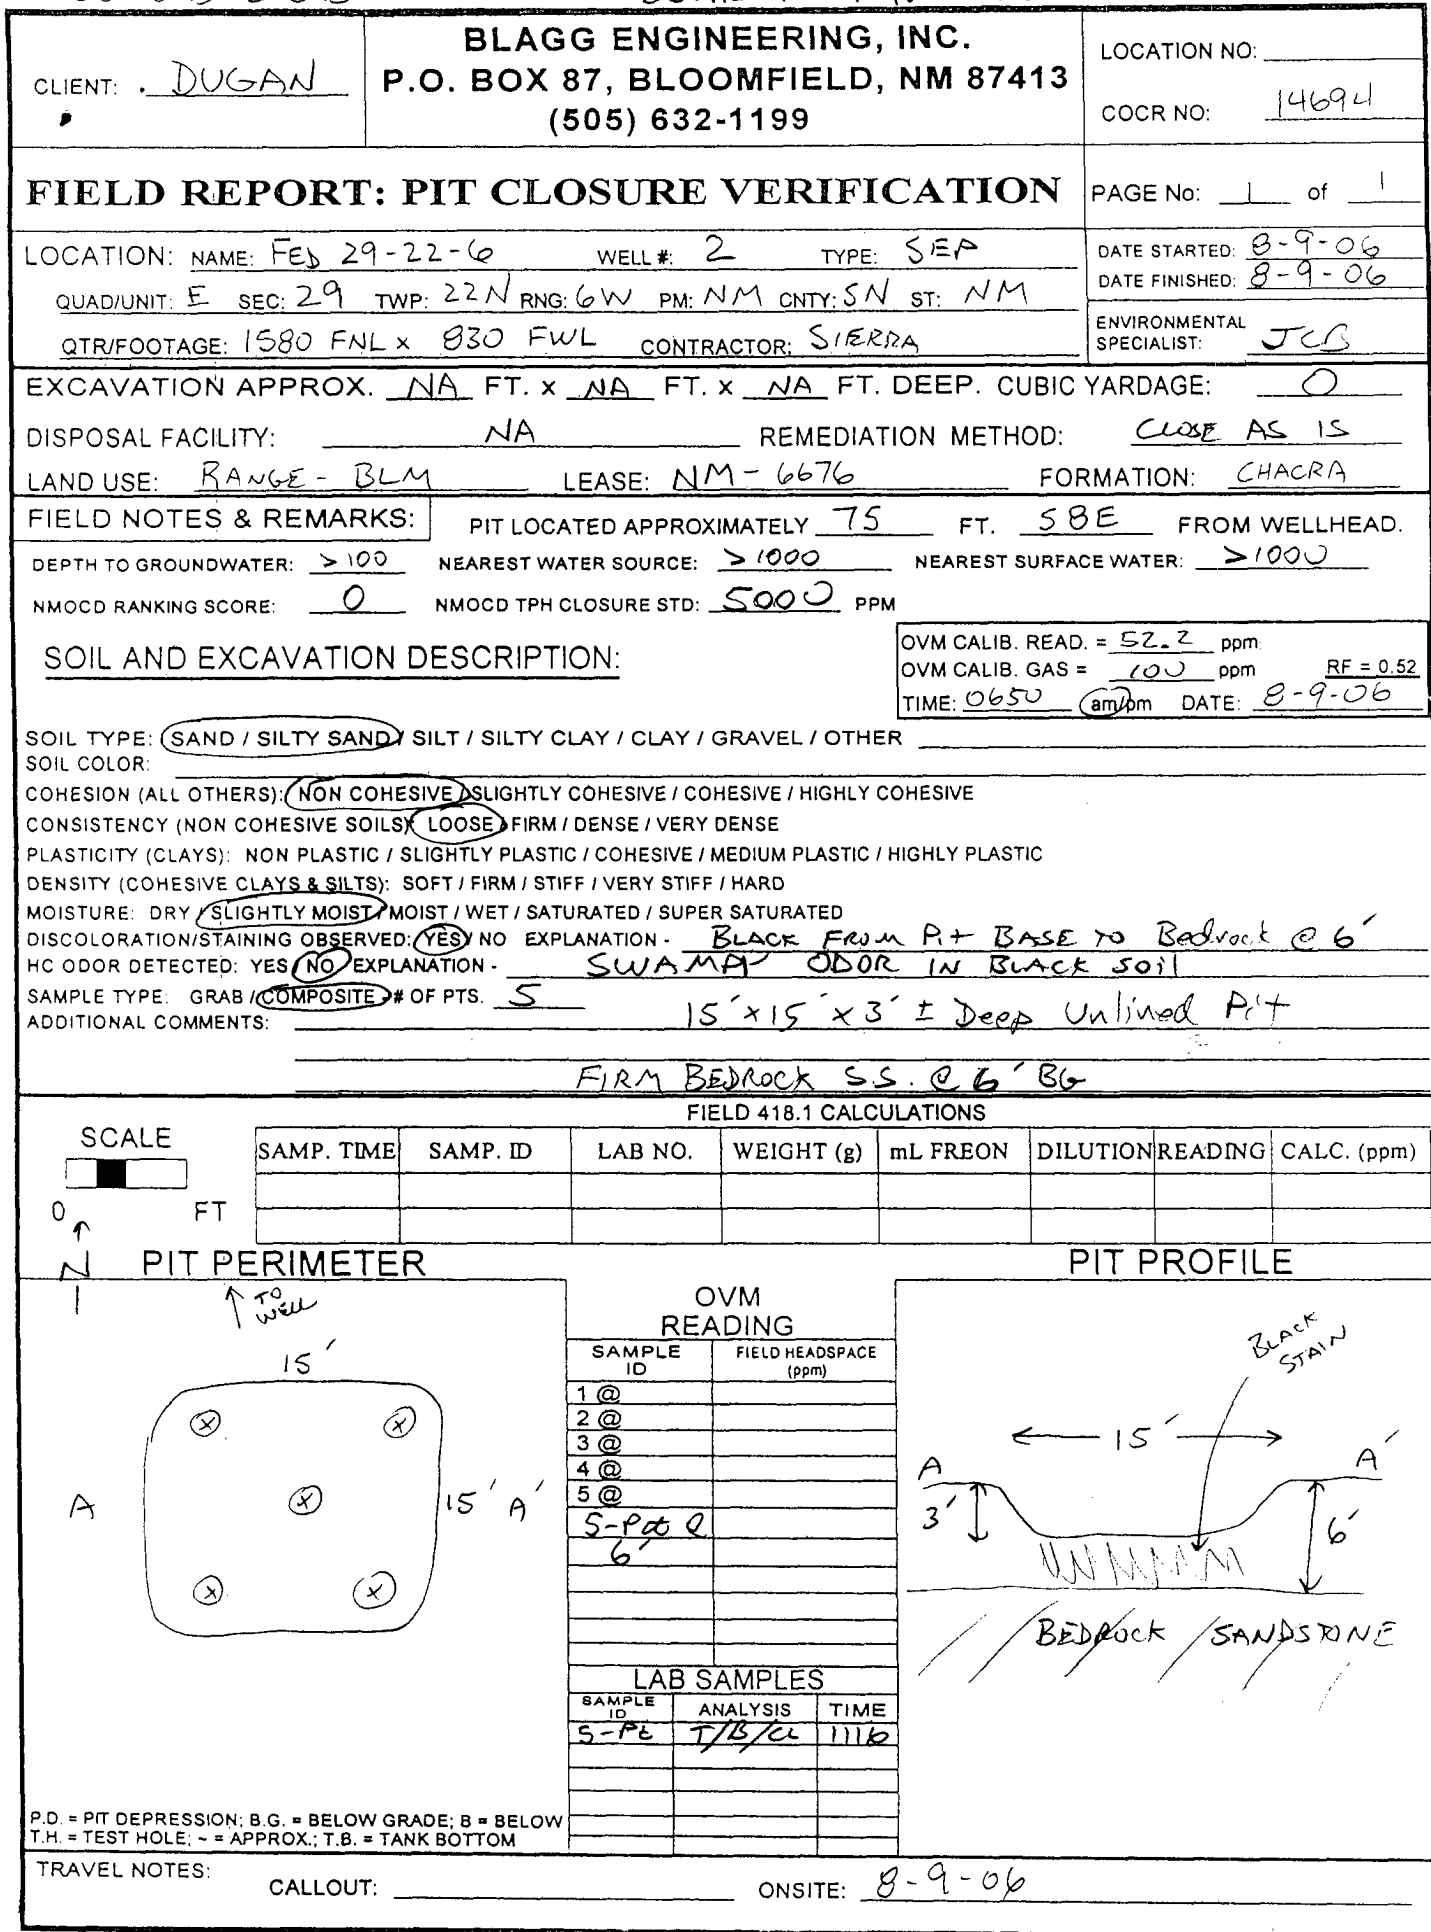 CLIENT: . DUGAN
BLAGG ENGINEERING, INC.
P.O. BOX 87, BLOOMFIELD, NM 87413
(505) 632-1199
LOCATION NO:
COCR NO: 14694
FIELD REPORT: PIT CLOSURE VERIFICATION
PAGE No: 1 of 1
LOCATION: NAME: FED 29-22-6 WELL #: 2 TYPE: SEP
QUAD/UNIT: E SEC: 29 TWP: 22N RNG: 6W PM: NM CNTY: SN ST: NM
QTR/FOOTAGE: 1580 FNL x 830 FWL CONTRACTOR: SIERRA
DATE STARTED: 8-9-06
DATE FINISHED: 8-9-06
ENVIRONMENTAL
SPECIALIST: JCB
EXCAVATION APPROX. NA FT. x NA FT. x NA FT. DEEP. CUBIC YARDAGE: 0
DISPOSAL FACILITY: NA REMEDIATION METHOD: CLOSE AS IS
LAND USE: RANGE - BLM LEASE: NM - 6676 FORMATION: CHACRA
FIELD NOTES & REMARKS: PIT LOCATED APPROXIMATELY 75 FT. S8E FROM WELLHEAD.
DEPTH TO GROUNDWATER: >100 NEAREST WATER SOURCE: >1000 NEAREST SURFACE WATER: >1000
NMOCD RANKING SCORE: 0 NMOCD TPH CLOSURE STD: 5000 PPM
SOIL AND EXCAVATION DESCRIPTION:
OVM CALIB. READ. = 52.2 ppm
OVM CALIB. GAS = 100 ppm RF = 0.52
TIME: 0650 am/pm DATE: 8-9-06
SOIL TYPE: SAND / SILTY SAND / SILT / SILTY CLAY / CLAY / GRAVEL / OTHER
SOIL COLOR:
COHESION (ALL OTHERS): NON COHESIVE / SLIGHTLY COHESIVE / COHESIVE / HIGHLY COHESIVE
CONSISTENCY (NON COHESIVE SOILS): LOOSE / FIRM / DENSE / VERY DENSE
PLASTICITY (CLAYS): NON PLASTIC / SLIGHTLY PLASTIC / COHESIVE / MEDIUM PLASTIC / HIGHLY PLASTIC
DENSITY (COHESIVE CLAYS & SILTS): SOFT / FIRM / STIFF / VERY STIFF / HARD
MOISTURE: DRY / SLIGHTLY MOIST / MOIST / WET / SATURATED / SUPER SATURATED
DISCOLORATION/STAINING OBSERVED: YES / NO EXPLANATION - BLACK FROM Pit BASE TO Bedrock @ 6'
HC ODOR DETECTED: YES / NO EXPLANATION - SWAMPY ODOR IN BLACK SOil
SAMPLE TYPE: GRAB / COMPOSITE # OF PTS. 5
ADDITIONAL COMMENTS: 15' x 15' x 3' ± Deep Unlined Pit
FIRM BEDROCK S.S. @ 6' BG
FIELD 418.1 CALCULATIONS
SCALE
0 FT
SAMP. TIME SAMP. ID LAB NO. WEIGHT (g) mL FREON DILUTION READING CALC. (ppm)
N
PIT PERIMETER
PIT PROFILE
TO
WELL
15'
A
15' A'
OVM
READING
SAMPLE ID FIELD HEADSPACE (ppm)
1 @
2 @
3 @
4 @
5 @
5-Pt @
6'
LAB SAMPLES
SAMPLE ID ANALYSIS TIME
5-Pt T/B/CL 1116
BLACK
STAIN
15'
A A'
3' 6'
BEDROCK / SANDSTONE
P.D. = PIT DEPRESSION; B.G. = BELOW GRADE; B = BELOW
T.H. = TEST HOLE; ~ = APPROX.; T.B. = TANK BOTTOM
TRAVEL NOTES: CALLOUT: ONSITE: 8-9-06